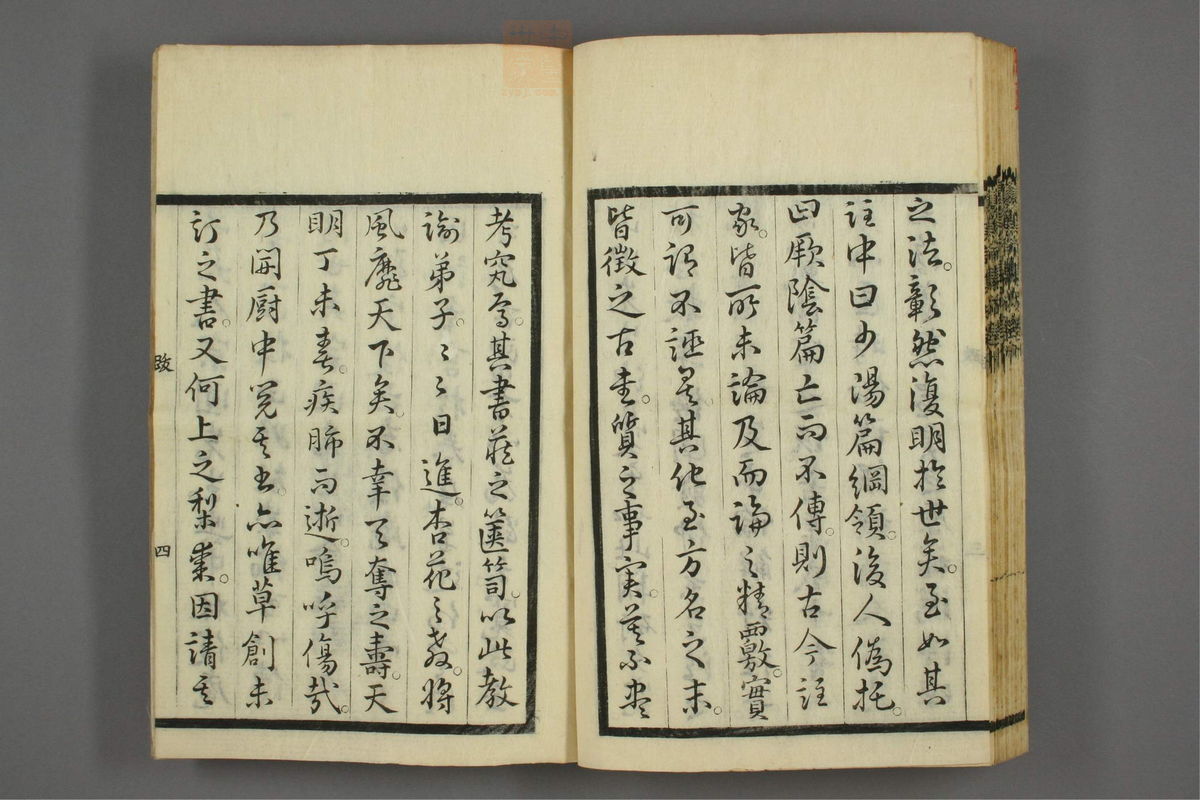 之法。彰然復明於世矣。至如其
註中曰少陽篇綱領。後人偽托。
曰厥陰篇亡而不傳。則古今註
家。皆所未論及而論之精覈。實
可謂不誣矣。其他至方名之末。
皆徵之古書。質之事実。莫不尽
考究焉。其書蔵之篋笥。以此教
諭弟子。弟子日進。杏花之教。将
風靡天下矣。不幸天奪之壽。天
明丁未春。疾肺而逝。嗚呼傷哉。
乃開厨中見其書。亦唯草創未
訂之書。又何上之梨棗。因請其
跋
四